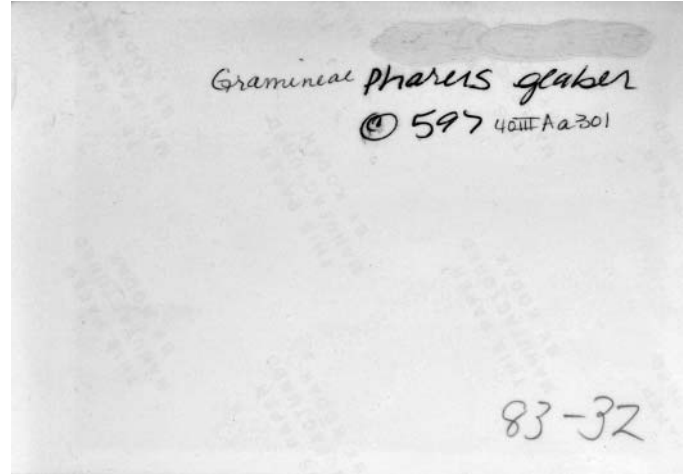 Gramineae Pharus glaber
© 597 40III Aa301
83-32